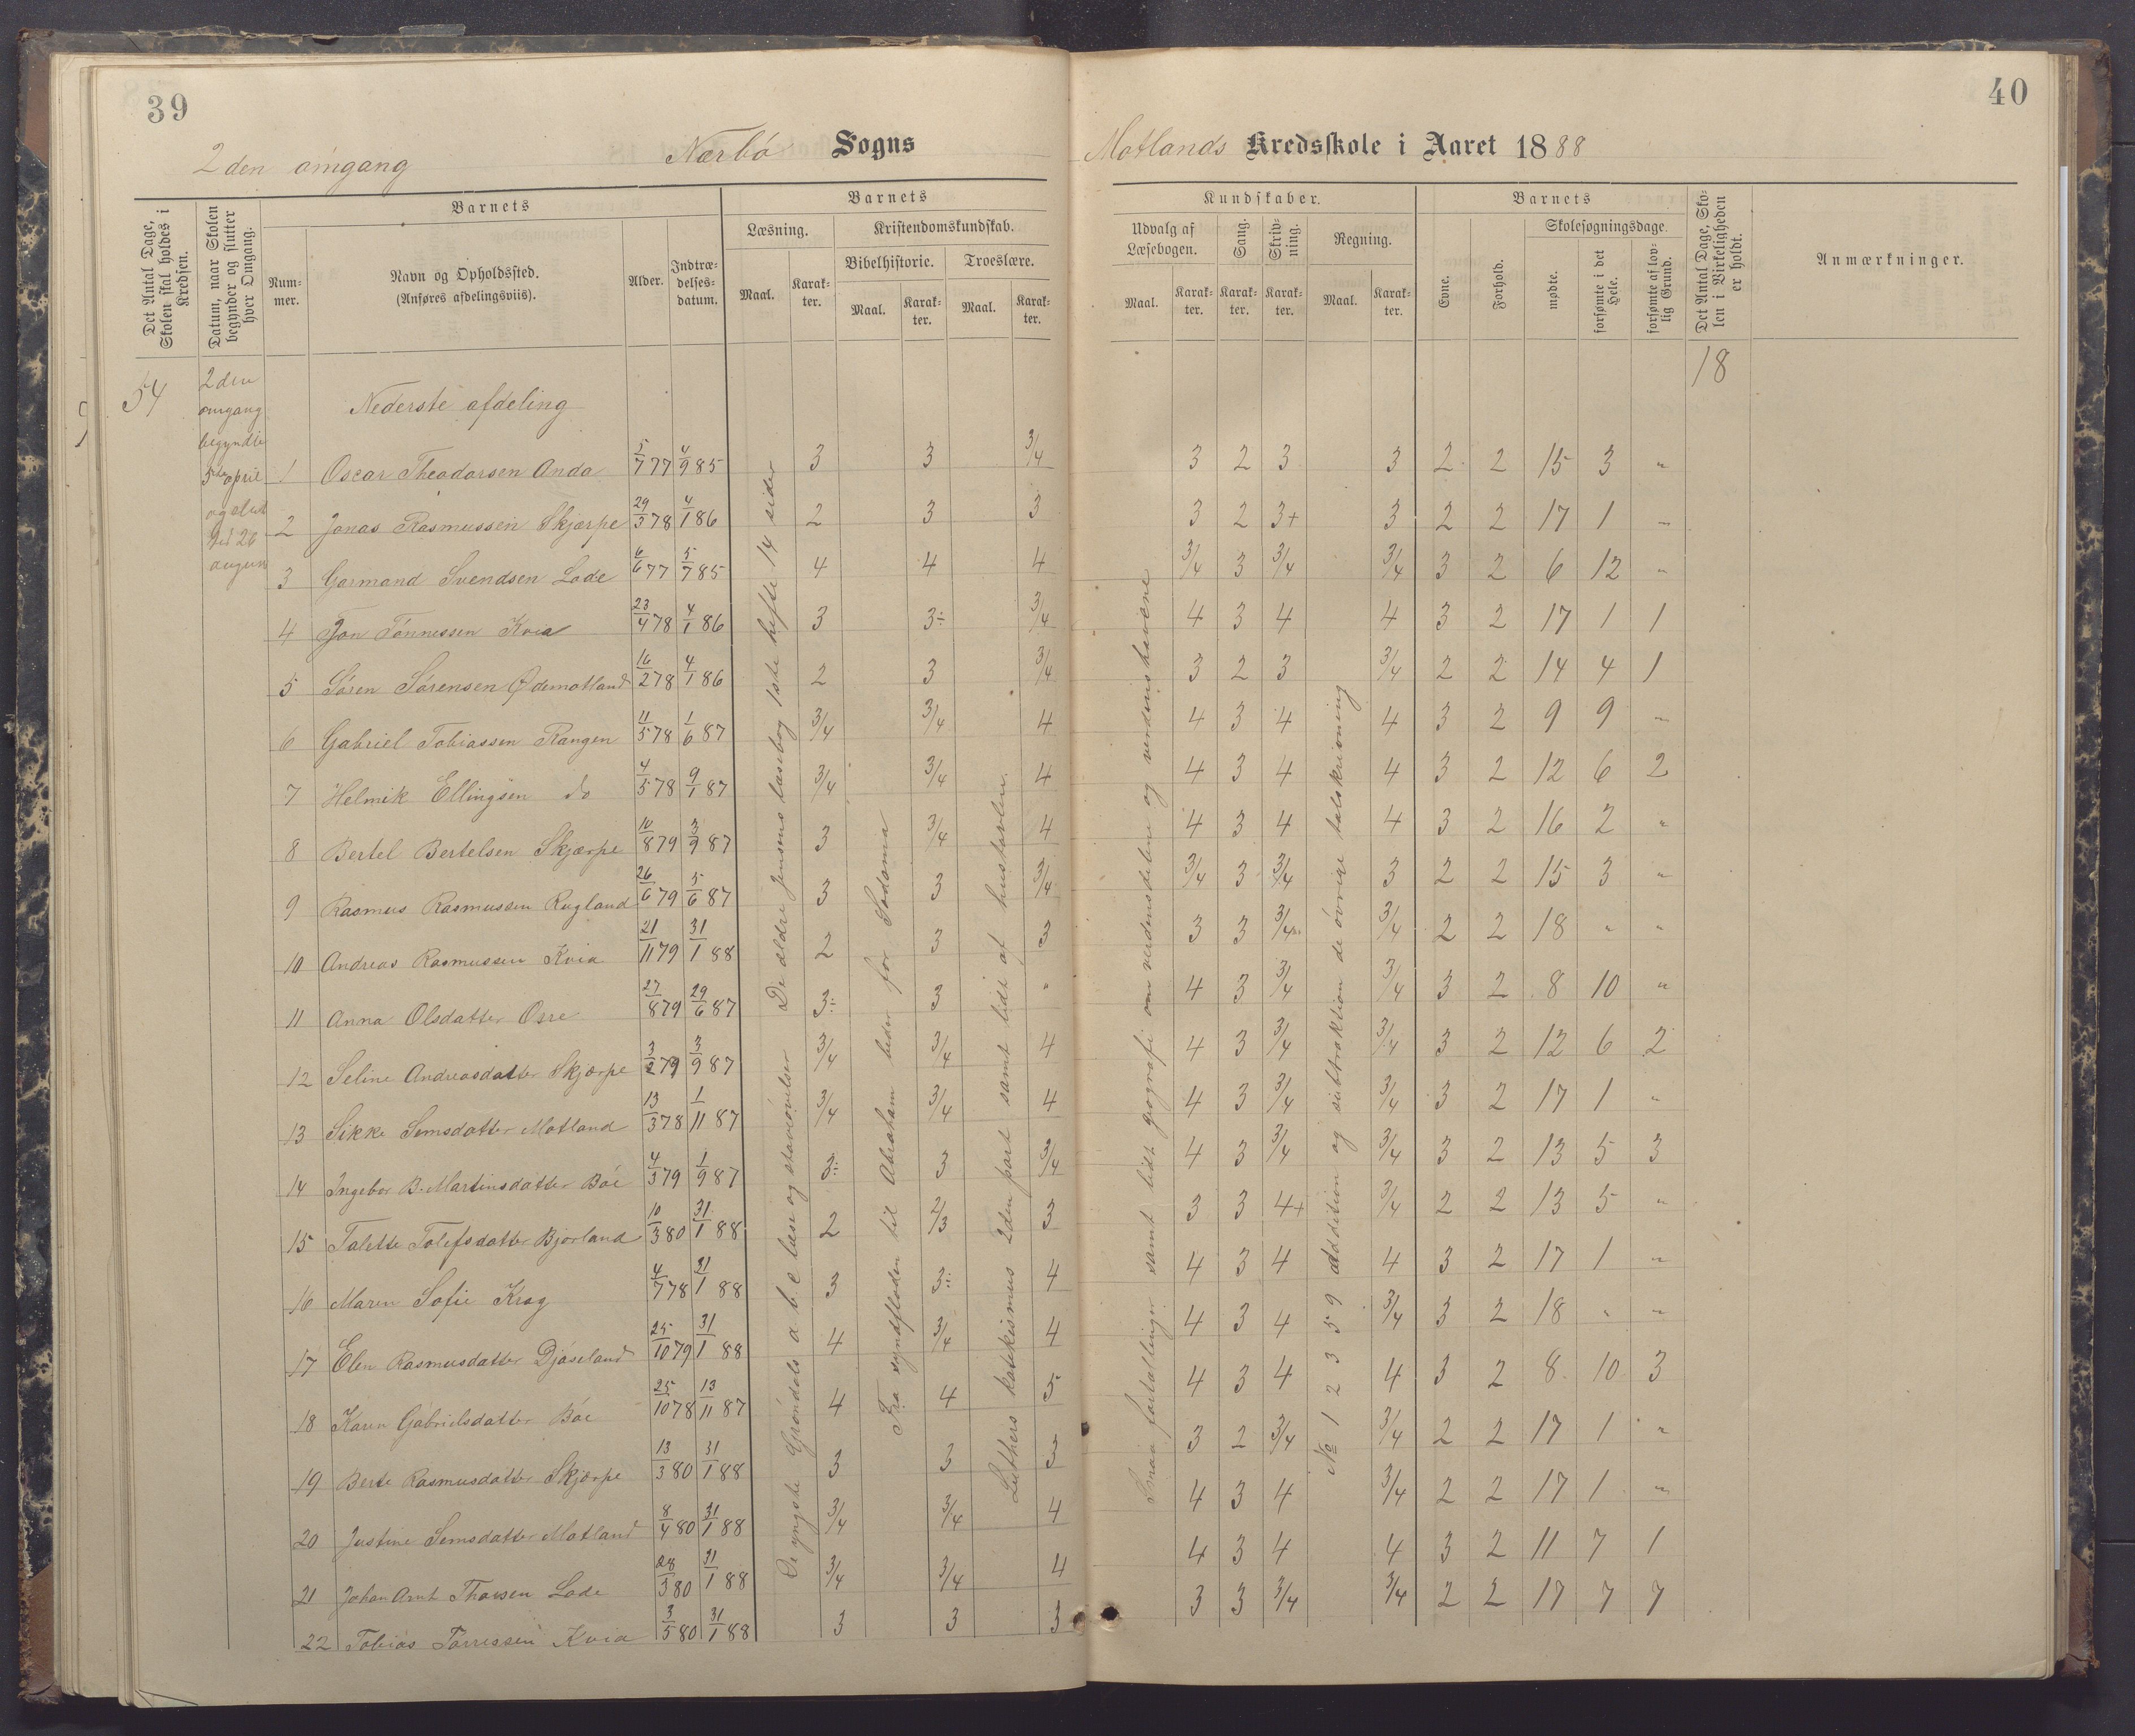 39
40
2den omgang Nærbø Sogns
Motlands Kredsskole i Aaret 1888
Det Antal Dage, Skolen skal holdes i Kredsen.
Datum, naar Skolen begynder og slutter hver Omgang.
Barnets
Nummer.
Navn og Opholdssted.
(Anføres afdelingsviis).
Alder.
Indtrædelsesdatum.
Barnets
Læsning.
Kristendomskundskab.
Bibelhistorie.
Troeslære.
Maal. Karakter. Maal. Karakter. Maal. Karakter.
Kundskaber.
Udvalg af Læsebogen.
Sang.
Skrivning.
Regning.
Maal. Karakter. Karakter. Karakter. Maal. Karakter.
Barnets
Evne.
Forhold.
Skolesøgningsdage.
mødte.
forsømte i det Hele.
forsømte af lovlig Grund.
Det Antal Dage, Skolen i Virkeligheden er holdt.
Anmærkninger.
54
2den omgang begyndte 5te april og slut ved 26 august
18
Nederste afdeling
1 Oscar Theodorsen Anda 5/7 77 4/9 85 3 3 3/4 3 2 3 3 2 2 15 3 "
2 Jonas Rasmussen Skjærpe 29/3 78 4/1 86 2 3 3 3 2 3+ 3 2 2 17 1 "
3 Garmand Svendsen Lode 6/6 77 5/7 85 4 4 4 3/4 3 3/4 3/4 3 2 6 12 "
4 Jon Tønnessen Kvia 23/4 78 4/1 86 3 3÷ 3/4 4 3 4 4 3 2 17 1 1
5 Søren Sørensen Ødemotland 16/2 78 4/1 86 2 3 3/4 3 2 3 3/4 2 2 14 4 1
6 Gabriel Tobiassen Rangen 11/5 78 1/6 87 3/4 3/4 4 4 3 4 4 3 2 9 9 "
7 Helmik Ellingsen do 4/5 78 9/1 87 3/4 3/4 4 4 3 4 4 3 2 12 6 2
8 Bertel Bertelsen Skjærpe 10/8 79 3/9 87 3 3/4 4 4 3 4 4 3 2 16 2 "
9 Rasmus Rasmussen Rugland 26/6 79 5/6 87 3 3 3/4 3/4 3 3/4 3 2 2 15 3 "
10 Andreas Rasmussen Kvia 21/11 79 31/1 88 2 3 3 3 3 3/4 3/4 2 2 18 " "
11 Anna Olsdatter Osre 27/8 79 29/6 87 3÷ 3 " 4 3 3/4 3/4 3 2 8 10 "
12 Seline Andreasdatter Skjærpe 3/2 79 3/9 87 3/4 3/4 4 4 3 3/4 3/4 3 2 12 6 2
13 Sikke Simsdatter Motland 13/3 78 1/11 87 3/4 3/4 4 4 3 3/4 3/4 3 2 17 1 "
14 Ingebor B. Martinsdatter Bøe 4/3 79 1/9 87 3÷ 3 3/4 4 3 3/4 3/4 3 2 13 5 3
15 Talette Tolefsdatter Bjorland 10/3 80 31/1 88 2 2/3 3 3 3 4+ 3/4 2 2 13 5 "
16 Maren Sofie Krag 4/7 78 31/1 88 3 3÷ 4 4 3 4 4 3 2 17 1 "
17 Elen Rasmusdatter Djøseland 25/10 79 31/1 88 4 3/4 4 4 3 4 3/4 3 2 18 " "
18 Karen Gabrielsdatter Bøe 25/10 78 13/11 87 4 4 5 4 3 4 4 3 2 8 10 3
19 Berte Rasmusdatter Skjærpe 13/3 80 31/1 88 3 3 3 3 2 3/4 3/4 2 2 17 1 "
20 Justine Simsdatter Motland 8/4 80 31/1 88 3/4 3/4 4 4 3 4 3/4 2 2 17 1 "
21 Johan Arnt Thorsen Lode 28/3 80 31/1 88 3/4 3/4 4 4 3 4 4 3 2 11 7 1
22 Tobias Tørressen Kvia 3/5 80 31/1 88 3 3 3 3 3 3/4 3/4 2 2 17 7 7
De yngste Grøndals a b c læse og staveøvelser De ældre Jensens læsebog 1ste hefte 14 sider
Fra syndfloden til Abraham beder for Sodoma
Luthers katekismus 2den part samt lidt af hustavlen.
Smaa fortællinger samt lidt geografi om verdensdelene og verdenshavene
№ 1 2 3 5 9 addition og subtraktion de øvrige talskrivning